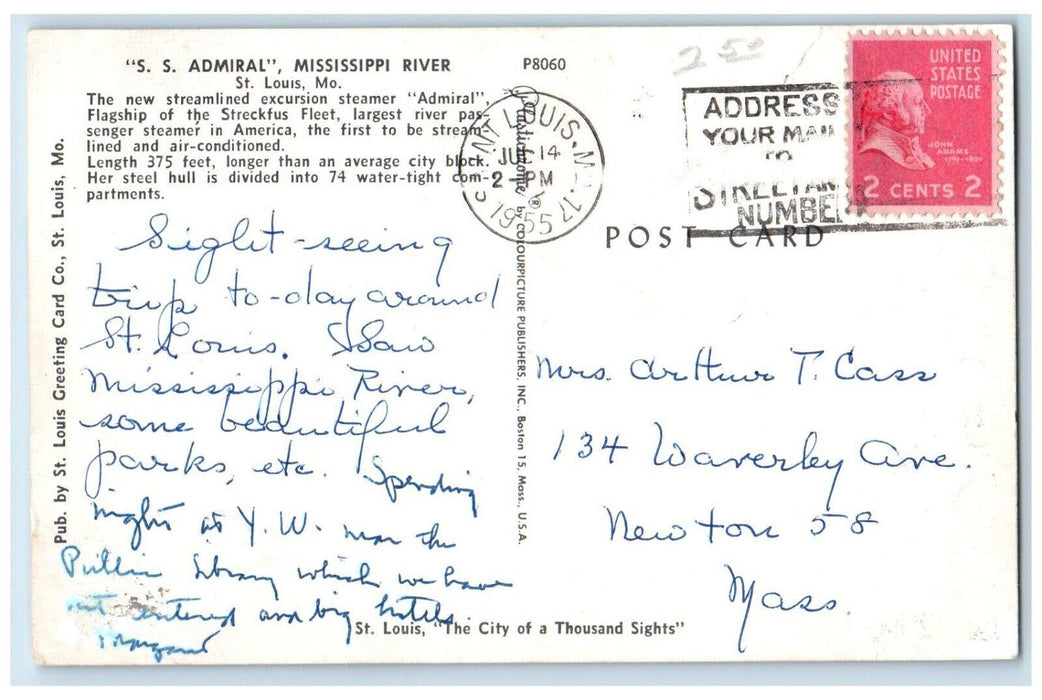 "S. S. ADMIRAL", MISSISSIPPI RIVER
St. Louis, Mo.
The new streamlined excursion steamer "Admiral",
Flagship of the Streckfus Fleet, largest river pas-
senger steamer in America, the first to be stream-
lined and air-conditioned.
Length 375 feet, longer than an average city block.
Her steel hull is divided into 74 water-tight com-
partments.
P8060
2 50
SAINT LOUIS, MO. 17
JUL 14
2 PM
1955
ADDRESS
YOUR MAIL
TO
STREET AND
NUMBER
UNITED
STATES
POSTAGE
JOHN
ADAMS
1797-1801
2 CENTS 2
POST CARD
Pub. by St. Louis Greeting Card Co., St. Louis, Mo.
Plastichrome ® by COLOURPICTURE PUBLISHERS, INC., Boston 15, Mass., U.S.A.
Sight-seeing
trip to-day around
St. Louis. Saw
Mississippi River,
some beautiful
parks, etc. Spending
night at Y.W. near the
Public library which we have
not entered and big hotels.
Margaret
Mrs. Arthur T. Cass
134 Waverley Ave.
Newton 58
Mass.
St. Louis, "The City of a Thousand Sights"